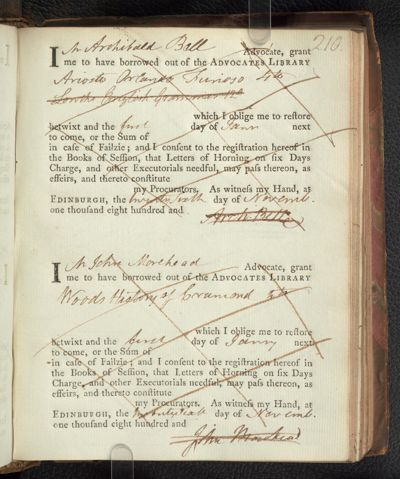 210.
I Mr Archibald Bell Advocate, grant
me to have borrowed out of the ADVOCATES LIBRARY
Ariosto Orlando Furioso 4to
Louths English Grammar 12o
which I oblige me to restore
betwixt and the first day of Janry next
to come, or the Sum of
in case of Failzie; and I consent to the registration hereof in
the Books of Session, that Letters of Horning on six Days
Charge, and other Executorials needful, may pass thereon, as
effeirs, and thereto constitute
my Procurators. As witness my Hand, at
EDINBURGH, the twenty sixth day of Novemb.
one thousand eight hundred and
Arch Bell
I Mr John Morehead Advocate, grant
me to have borrowed out of the ADVOCATES LIBRARY
Woods History of Cramond 4to
which I oblige me to restore
betwixt and the first day of Janry next
to come, or the Sum of
in case of Failzie; and I consent to the registration hereof in
the Books of Session, that Letters of Horning on six Days
Charge, and other Executorials needful, may pass thereon, as
effeirs, and thereto constitute
my Procurators. As witness my Hand, at
EDINBURGH, the day of Novemb.
one thousand eight hundred and
John Morehead